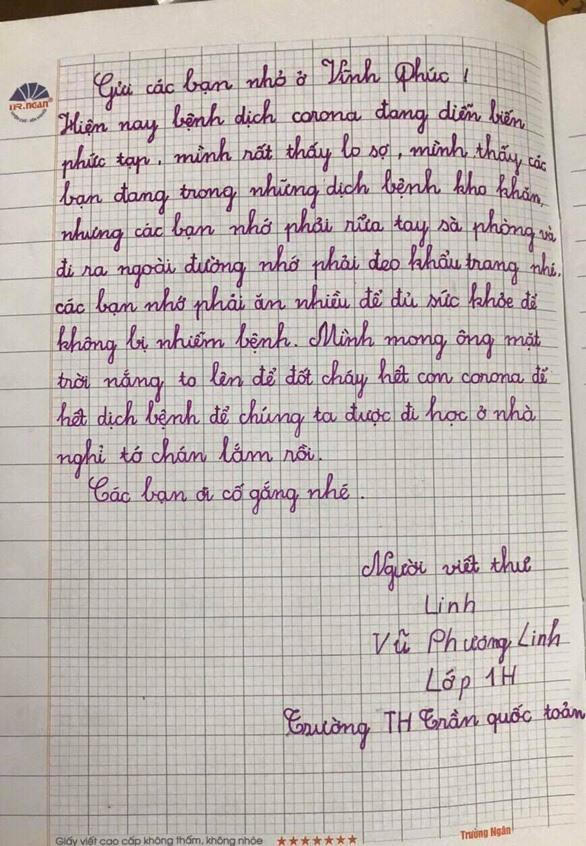 TR.NGAN
Gửi các bạn nhỏ ở Vĩnh Phúc!
Hiện nay bệnh dịch corona đang diễn biến
phức tạp, mình rất thấy lo sợ, mình thấy các
bạn đang trong những dịch bệnh kho khăn,
nhưng các bạn nhớ phải rữa tay sà phòng và
đi ra ngoài đường nhớ phải đeo khẩu trang nhé.
các bạn nhớ phải ăn nhiều để đủ sức khỏe để
không bị nhiễm bệnh. Mình mong ông mặt
trời nắng to lên để đốt cháy hết con corona để
hết dịch bệnh để chúng ta được đi học ở nhà
nghỉ tớ chán lắm rồi.
Các bạn ơi cố gắng nhé.
Người viết thư
Linh
Vũ Phương Linh
Lớp 1H
Trường TH Trần quốc toản
Giấy viết cao cấp không thấm, không nhòe
Trường Ngân